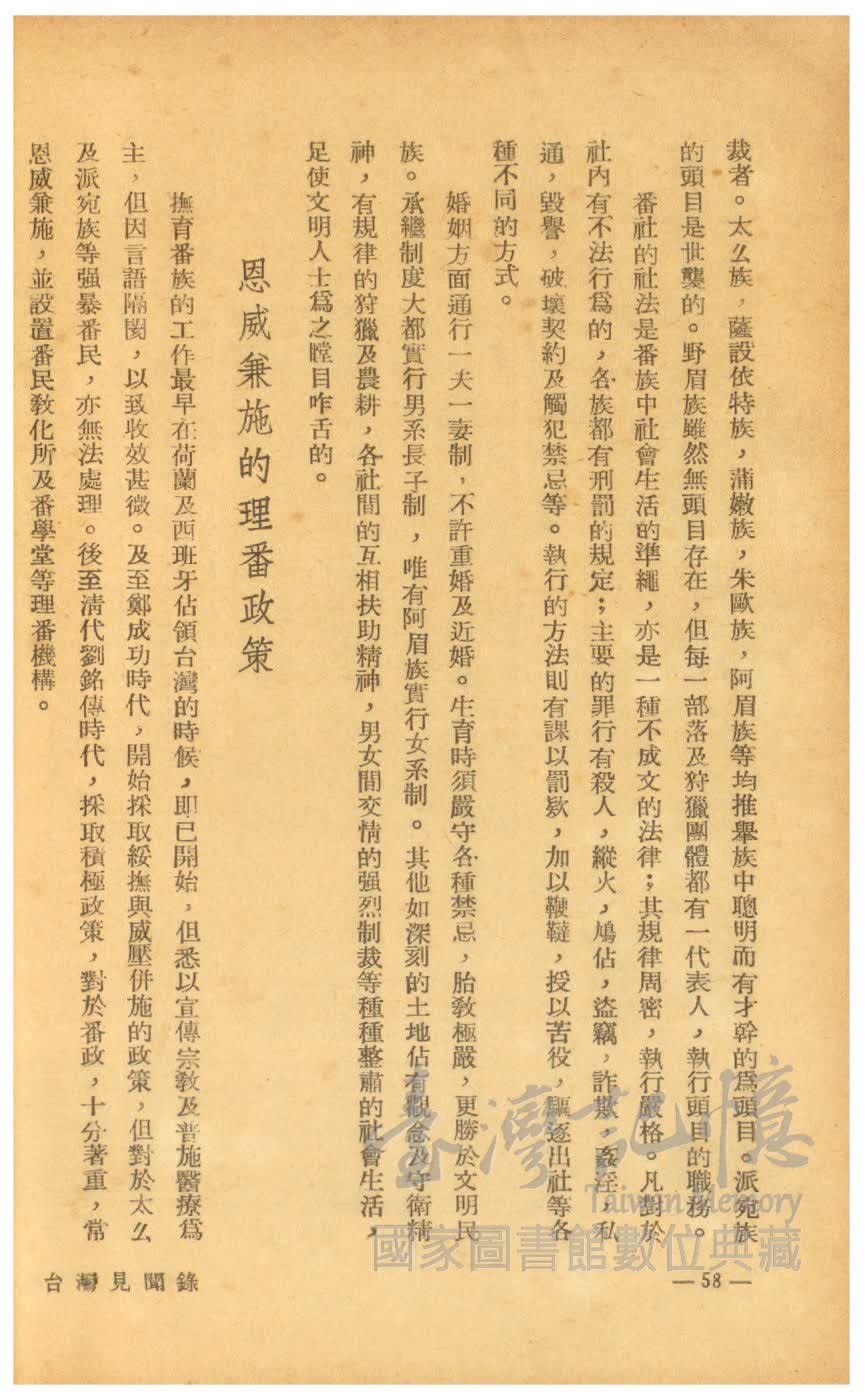 裁者。太么族，薩設依特族，蒲嫩族，朱歐族，阿眉族等均推舉族中聰明而有才幹的爲頭目。派宛族
的頭目是世襲的。野眉族雖然無頭目存在，但每一部落及狩獵團體都有一代表人，執行頭目的職務。
番社的社法是番族中社會生活的準繩，亦是一種不成文的法律；其規律周密，執行嚴格。凡對於
社内有不法行爲的，各族都有刑罰的規定；主要的罪行有殺人，縱火，鳩佔，盜竊，詐欺，姦淫，私
通，毀譽，破壞契約及觸犯禁忌等。執行的方法則有課以罰欵，加以鞭韃，授以苦役，驅逐出社等各
種不同的方式。
婚姻方面通行一夫一妻制，不許重婚及近婚。生育時須嚴守各種禁忌，胎敎極嚴，更勝於文明民
族。承繼制度大都實行男系長子制，唯有阿眉族實行女系制。其他如深刻的土地佔有觀念及守衛精
神，有規律的狩獵及農耕，各社間的互相扶助精神，男女間交情的强烈制裁等種種整肅的社會生活，
足使文明人士爲之瞠目咋舌的。
恩威兼施的理番政策
撫育番族的工作最早在荷蘭及西班牙佔領台灣的時候，即已開始，但悉以宣傳宗敎及普施醫療爲
主，但因言語隔閡，以致收效甚微。及至鄭成功時代，開始採取綏撫與威壓併施的政策，但對於太么
及派宛族等强暴番民，亦無法處理。後至淸代劉銘傳時代，採取積極政策，對於番政，十分著重，常
恩威兼施，並設置番民敎化所及番學堂等理番機構。
台灣見聞錄
—58—
臺灣記憶
Taiwan Memory
國家圖書館數位典藏